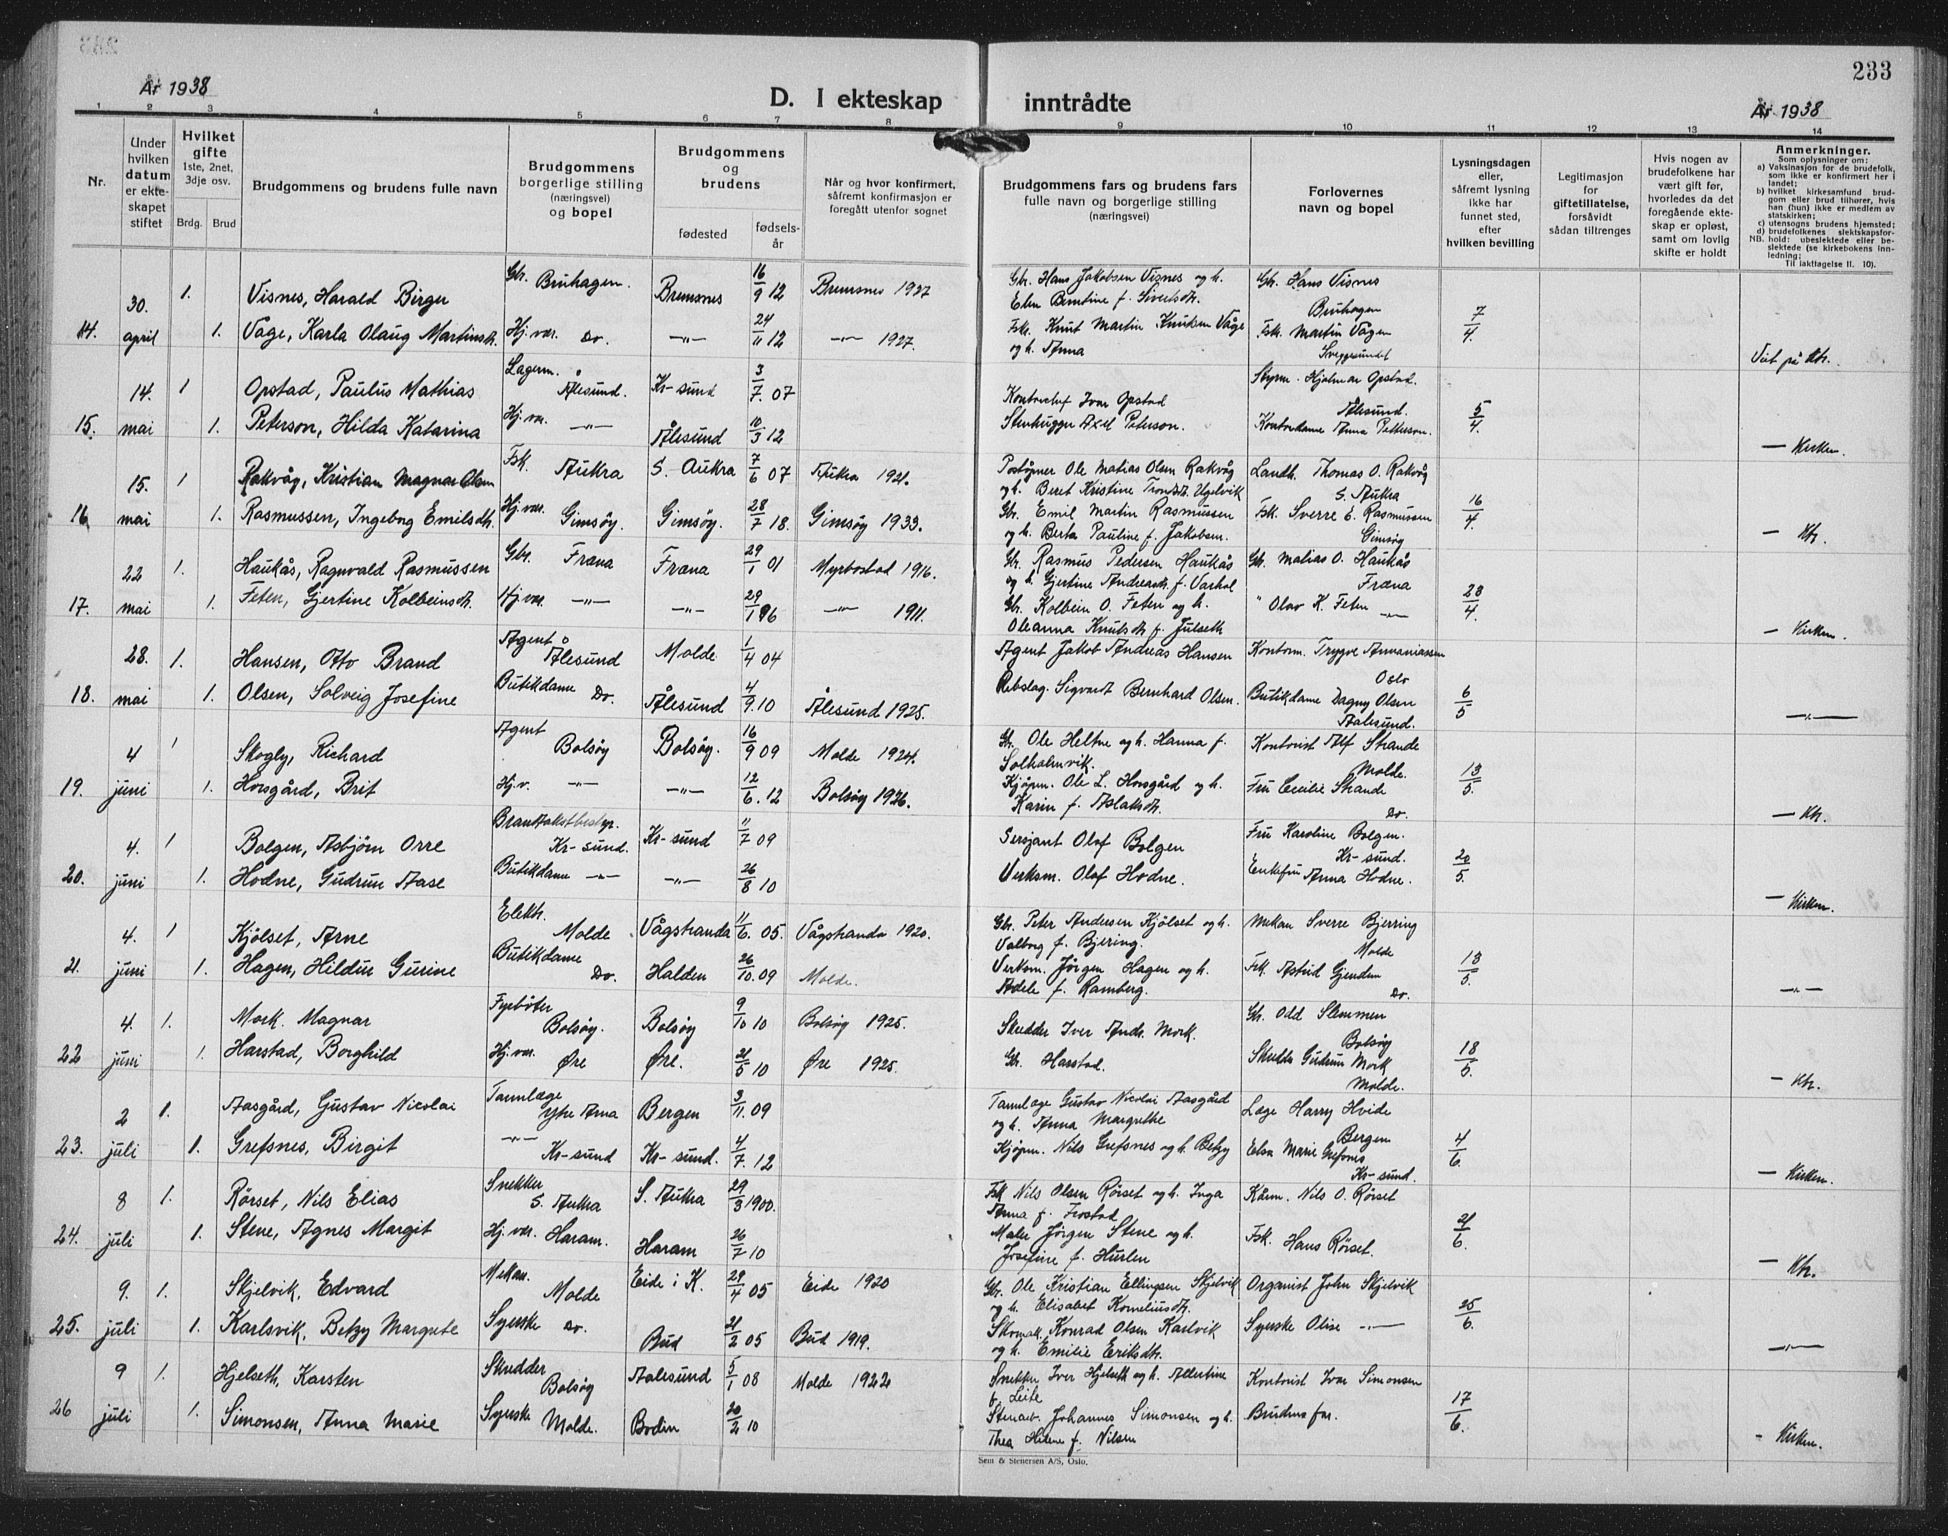 233
År 1938
D. I ekteskap inntrådte
År 1938
1 2 3 4 5 6 7 8 9 10 11 12 13 14
Nr.
Under hvilken datum er ekteskapet stiftet
Hvilket gifte 1ste, 2net, 3dje osv.
Brdg. Brud
Brudgommens og brudens fulle navn
Brudgommens borgerlige stilling (næringsvei) og bopel
Brudgommens og brudens
fødested
fødselsår
Når og hvor konfirmert, såfremt konfirmasjon er foregått utenfor sognet
Brudgommens fars og brudens fars fulle navn og borgerlige stilling (næringsvei)
Forlovernes navn og bopel
Lysningsdagen eller, såfremt lysning ikke har funnet sted, efter hvilken bevilling
Legitimasjon for giftetillatelse, forsåvidt sådan tiltrenges
Hvis nogen av brudefolkene har vært gift før, hvorledes da det foregående ekteskap er opløst, samt om lovlig skifte er holdt
Anmerkninger.
Som oplysninger om:
a) Vaksinasjon for de brudefolk, som ikke er konfirmert her i landet;
b) hvilket kirkesamfund brudgom eller brud tilhører, hvis han (hun) ikke er medlem av statskirken;
c) utensogns brudens hjemsted;
d) brudefolkenes slektskapsforhold: ubeslektede eller beslektede (se kirkebokens innledning;
NB.
Til iakttagelse II. 10).
30. 1. Visnes, Harald Birger Gbr. Bruhagen. Bremsnes 16/9 12 Bremsnes 1927 Gbr. Hans Jakobsen Visnes og h. Elen Berntine f. Sivertsdt. Gbr. Hans Visnes Bruhagen
14. april 1. Våge, Karla Olaug Martinsdt. Hj. vær. Do. —"— 24/11 12 —"— 1927. Fsk. Knut Martin Knutsen Våge og h. Anna Fsk. Martin Vågen Sveggesundet 7/4 Viet på Kh.
14. 1 Opstad, Paulus Mathias Lagerm. Ålesund. Kr-sund 3/7. 07 Kontorchef Ivar Opstad Styrm. Hjalmar Opstad. Ålesund.
15. mai 1. Peterson, Hilda Katarina Hj. vær. —"— Ålesund 10/3 12 Stenhugger Axel Peterson. Kontordame Anna Petterson. 5/4. — Kirken.
15. 1 Rakvåg, Kristian Magnar Olsen Fsk. Aukra S. Aukra 7/6 07 Aukra 1921. Poståpner Ole Matias Olsen Rakvåg og h. Beret Kristine Trondsdt. Ugelvik Landh. Thomas O. Rakvåg S. Aukra
16. mai 1. Rasmussen, Ingeborg Emilsdt. Hj. vær. Gimsøy. Gimsøy. 28/7 18. Gimsøy 1933. Gbr. Emil Martin Rasmussen og h. Berta Pauline f. Jakobsen. Fsk. Sverre E. Rasmussen Gimsøy 16/4 — Kh.
22 1. Haukås, Ragnvald Rasmussen Gbr. Fræna Fræna 29/1 01 Myrbostad 1916. Gbr. Rasmus Pedersen Haukås og h. Gjertine Andreasdt. f. Varhol Gbr. Matias O. Haukås Fræna
17. mai 1. Feten, Gjertine Kolbeinsdt. Hj. vær. —"— —"— 29/1 96 —"— 1911. Gbr. Kolbein O. Feten og h. Oleanna Knutsdt. f. Julseth " Olav K. Feten —"— 28/4. — Kirken.
28. 1. Hansen, Otto Brand Agent Ålesund Molde 1/4 04 Agent Jakob Andreas Hansen Kontorm. Trygve Annaniassen Oslo
18. mai 1. Olsen, Solveig Josefine Butikdame Do. Ålesund 4/9. 10 Ålesund 1925. Rebslag. Sigvardt Bernhard Olsen. Butikdame Dagny Olsen Aalesund. 6/5 —"—
4 1 Skogly, Richard Agent Bolsøy Bolsøy. 16/9 09 Molde 1924. Gbr. Ole Heltne og h. Hanna f. Solholmvik. Kontorist Alf Strande Molde.
19. juni 1. Horsgård, Brit Hj. v. —"— —"— 12/6. 12 Bolsøy 1926. Kjøpm. Ole L. Horsgård og h. Karin f. Aslaksdt. Fru Cecilie Strande Do. 13/5. — Kh.
4. 1 Bolgen, Asbjørn Orre Branntakstbestyr. Kr-sund. Kr-sund 11/7 09 Sersjant Olaf Bolgen Fru Karoline Bolgen. Kr-sund.
20. juni 1. Hodne, Gudrun Aase Butikdame —"— —"— 26/8 10 Verksm. Olaf Hodne. Enkefru Anna Hodne. 20/5. — Kirken.
4. 1 Kjølset, Arne Elektr. Molde Vågstranda 11/6. 05. Vågstranda 1920. Gbr. Peter Andersen Kjølset og h. Valborg f. Bjering. Mekan Sverre Bjerring Molde
21. juni 1. Hagen, Hildur Gurine Butikdame Do. Halden 26/10. 09 Molde. Verksm. Jørgen Hagen og h. Adele f. Ramberg. Frk. Astrid Gjendem Do. 13/5 —"—
4. 1. Mork. Magnar Fyrbøter Bolsøy. Bolsøy 9/10 10 Bolsøy 1925. Skredder Iver Andr. Mork. Gbr. Odd Slemmen Bolsøy
22 juni 1. Harstad, Borghild Hj. vær. Øre Øre. 21/5 10 Øre 1925. Gbr. Harstad. Skredder Gudrun Mork Molde. 18/5. — Kh.
2 1. Aasgård, Gustav Nicolai Tannlæge Ytre Arna Bergen 3/11. 09 Tannlæge Gustav Nicolai Aasgård og h. Anna Margrethe Læge Harry Hvide Bergen
23. juli 1. Grefsnes, Birgit —"— Kr-sund Kr-sund. 4/7. 12 Kjøpm. Nils Grefsnes og h. Betzy Elsa Marie Grefsnes Kr-sund. 4/6. — Kirken.
8 1. Rørset, Nils Elias Snekker S. Aukra S. Aukra 29/3 1900. Fsk Nils Olsen Rørset og h. Inga Anna f. Frostad Kårm. Nils O. Rørset
24. juli 1. Stene, Agnes Margit Hj. vær. Haram. Haram 26/7 10 Maler Jørgen Stene og h. Josefine f. Hurlen Fsk. Hans Rørset. 21/6. — Kh.
9. 1. Skjelvik, Edvard Mekan. Molde Eide i K. 29/4 05 Eide 1920 Gbr. Ole Kristian Ellingsen Skjelvik og h. Elisabet Korneliusdt. Organist John Skjelvik
25. juli 1. Karlsvik, Betzy Margrete Syerske Do. Bud 21/2 05 Bud 1919. Skomak. Konrad Olsen Karlsvik og h. Emilie Eriksdt. Syerske Olise —"— 25/6. —"—
9 1. Hjelseth, Karsten Skredder Bolsøy Aalesund 5/1 08 Molde 1922 Snekker Iver Hjelseth og h. Albertine f. Leite Kontorist Ivar Simonsen
26 juli 1. Simonsen, Anna Marie Syerske Molde. Bodin 20/2 10 Stenarb. Johannes Simonsen og h. Thea Helene f. Nilsen Brudens far. 17/6. - Kirken.
Sem & Stenersen A/S, Oslo.